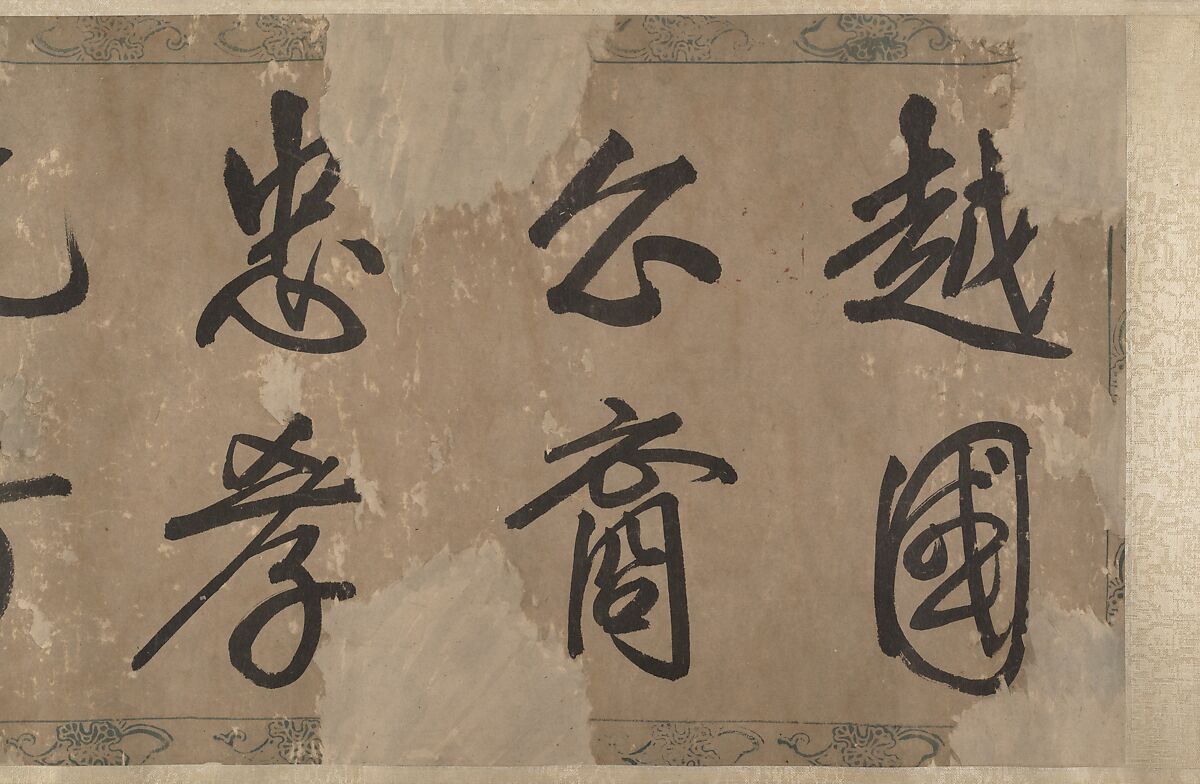 越國
公裔
忠孝